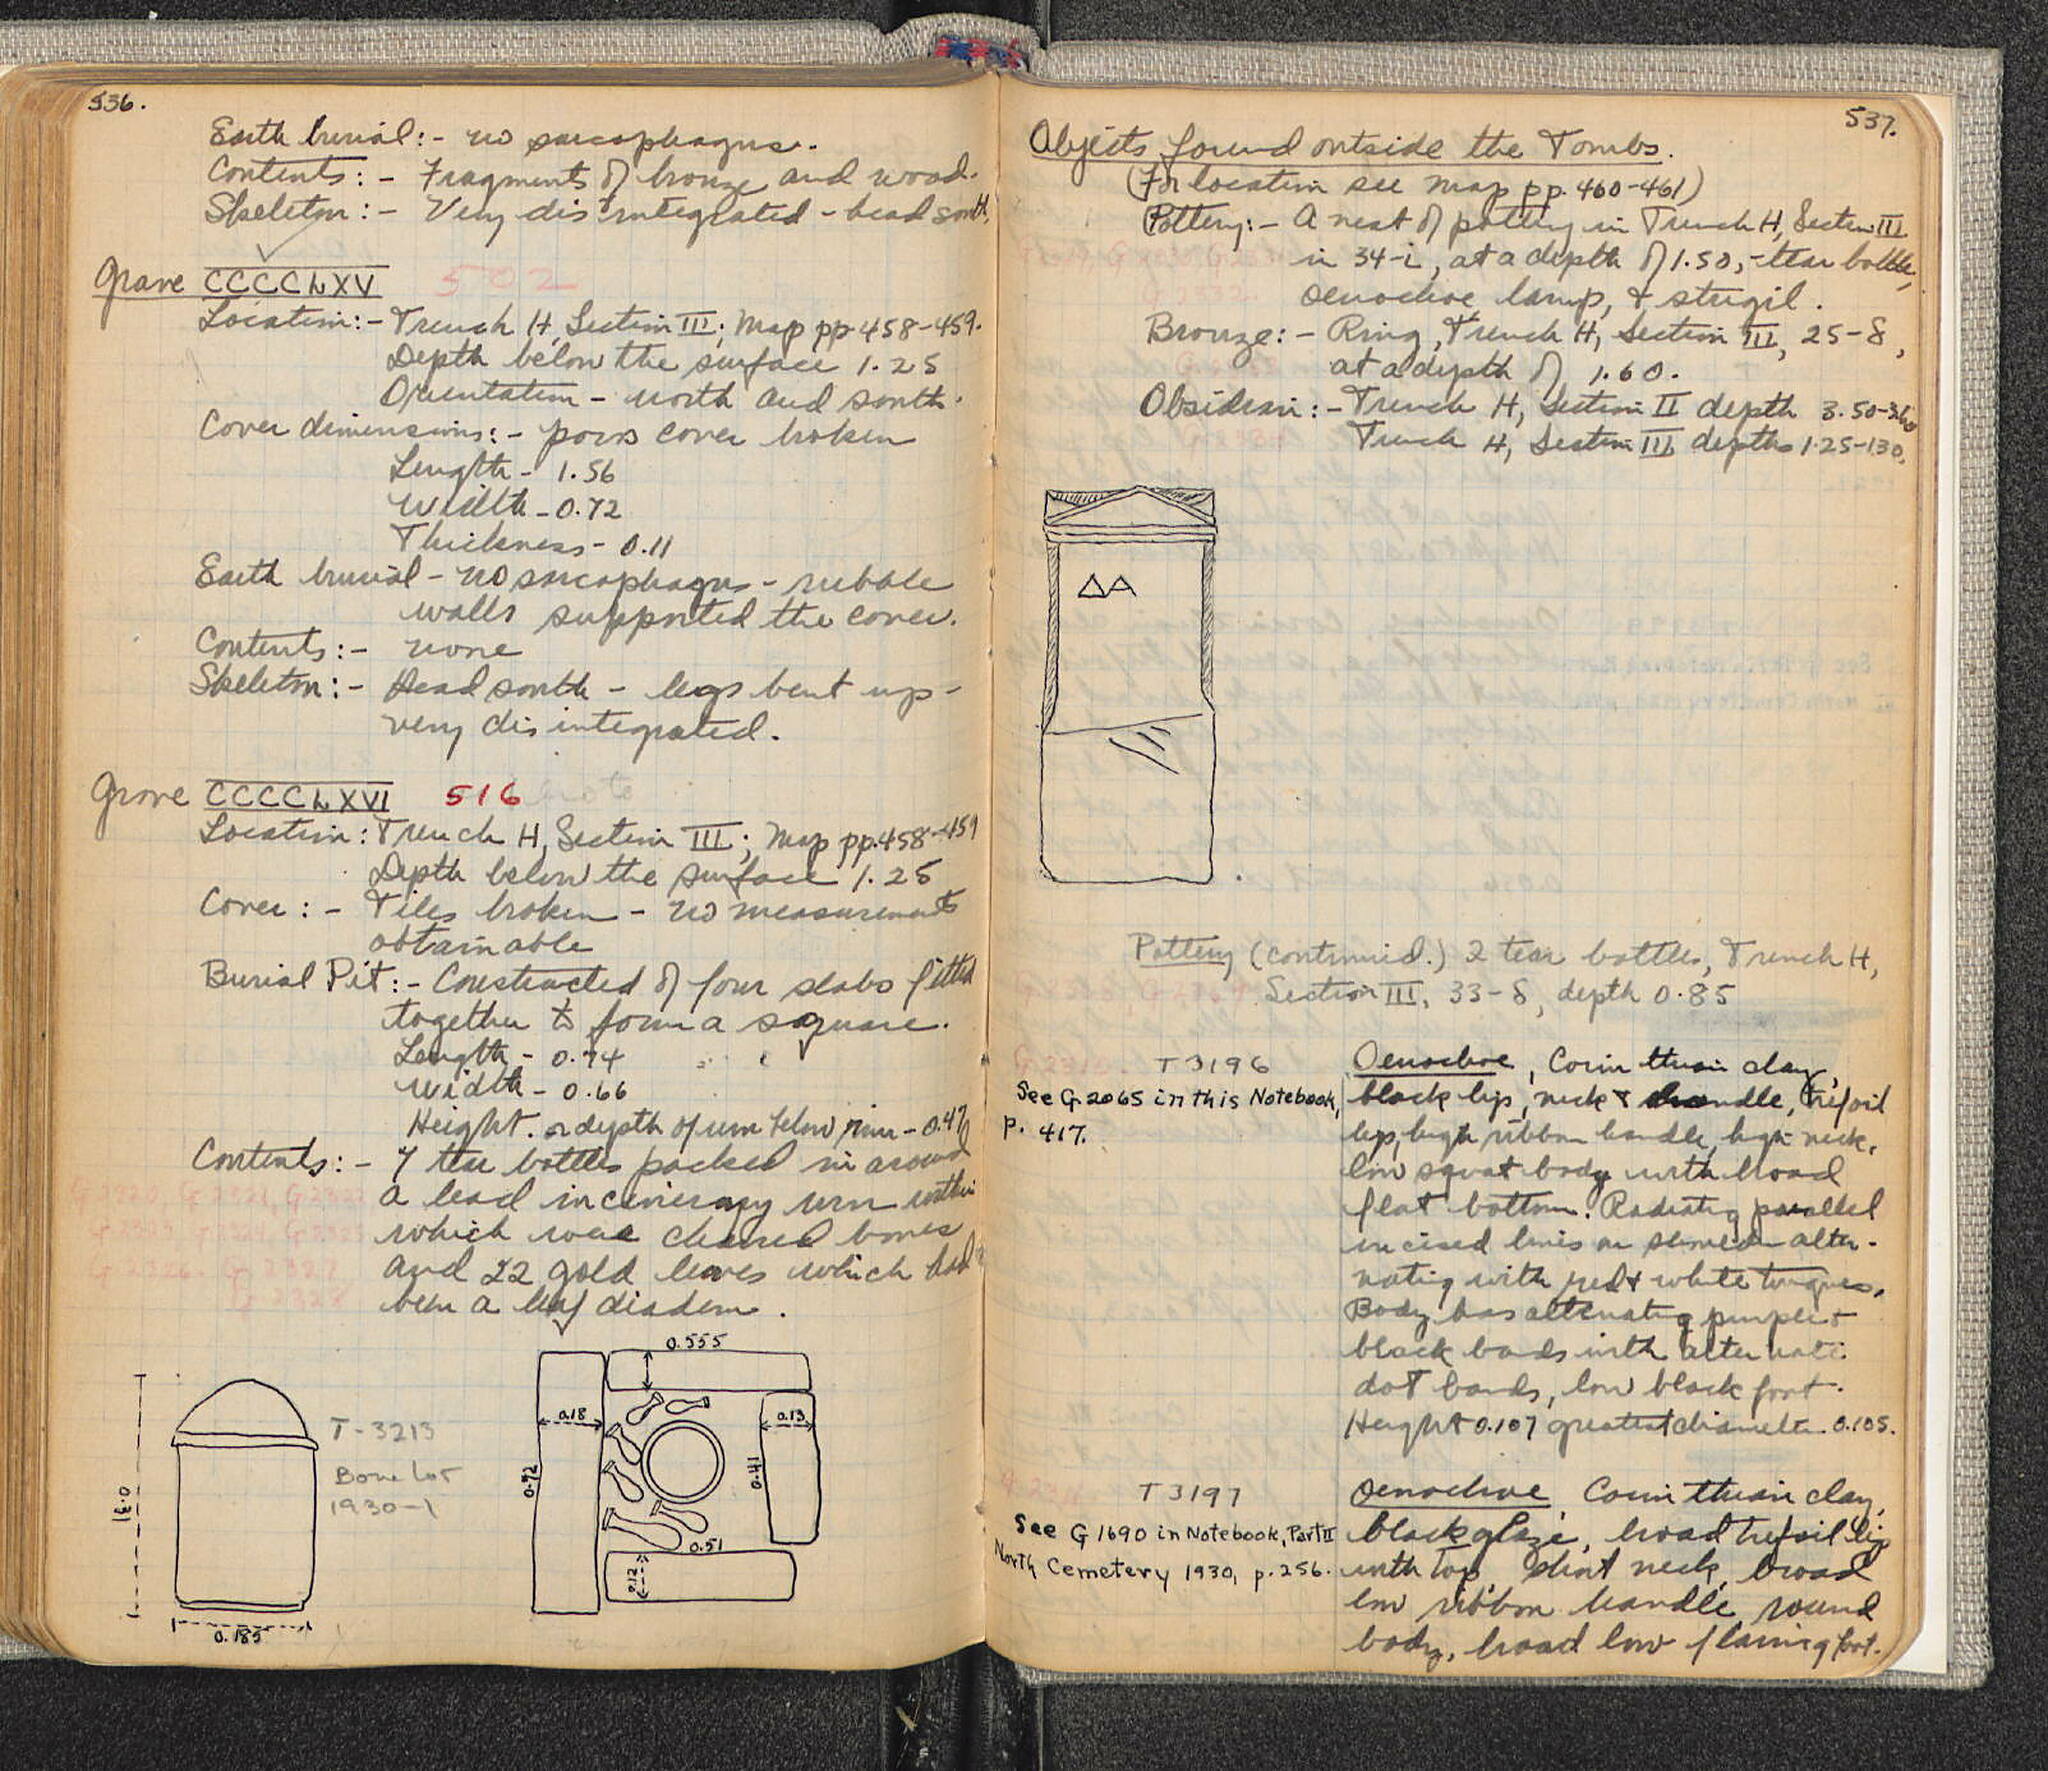 536.
Earth burial:- no sarcophagus.
Contents:- Fragments of bronze and wood.
Skeleton:- Very disintegrated - head south.
Grave CCCCLXV 502
Location:- Trench H, Section III; Map pp. 458-459.
Depth below the surface 1.25
Orientation - north and south.
Cover dimensions:- poros cover broken
Length - 1.56
Width - 0.72
Thickness - 0.11
Earth burial - no sarcophagus - rubble
walls supported the cover.
Contents:- none
Skeleton:- Head south - legs bent up -
very disintegrated.
Grave CCCCLXVI 516
Location: Trench H, Section III; Map pp. 458-459
Depth below the surface 1.25
Cover:- Tiles broken - no measurements
obtainable
Burial Pit:- Constructed of four slabs fitted
together to form a square.
Length - 0.74
Width - 0.66
Height. or depth of urn below rim - 0.47
Contents:- 7 tear bottles packed in around
a lead incinerary urn within
which were charred bones
and 22 gold leaves which had
been a leaf diadem.
G 2320, G 2321, G 2322
G 2323, G 2324, G 2325
G 2326. G 2327
G 2328
0.31
0.185
T-3213
Bone Lot
1930-1
0.555
0.18
0.13
0.92
0.41
0.51
0.12
537.
Objects found outside the Tombs.
(For location see map pp. 460-461)
Pottery:- A nest of pottery in Trench H, Section III
in 34-i, at a depth of 1.50,- tear bottle,
oenochoe lamp, & strigil.
Bronze:- Ring, Trench H, Section III, 25-8,
at a depth of 1.60.
Obsidian:- Trench H, Section II depth 3.50-
Trench H, Section III depths 1.25-1.30.
ΔΑ
Pottery (continued.) 2 tear bottles, Trench H,
Section III, 33-8, depth 0.85
T 3196
See G 2065 in this Notebook,
p. 417.
Oenochoe, Corinthian clay,
black lip, neck & handle, trefoil
lip, high ribbon handle, high neck,
low squat body with broad
flat bottom. Radiating parallel
incised lines on shoulder alter-
nating with red & white tongues.
Body has alternating purple &
black bands with alternate
dot bands, low black foot.
Height 0.107 greatest diameter 0.105.
T 3197
See G 1690 in Notebook, Part II
North Cemetery 1930, p. 256.
Oenochoe Corinthian clay,
black glaze, broad trefoil lip
with top short neck, broad
low ribbon handle, round
body, broad low flaring foot.